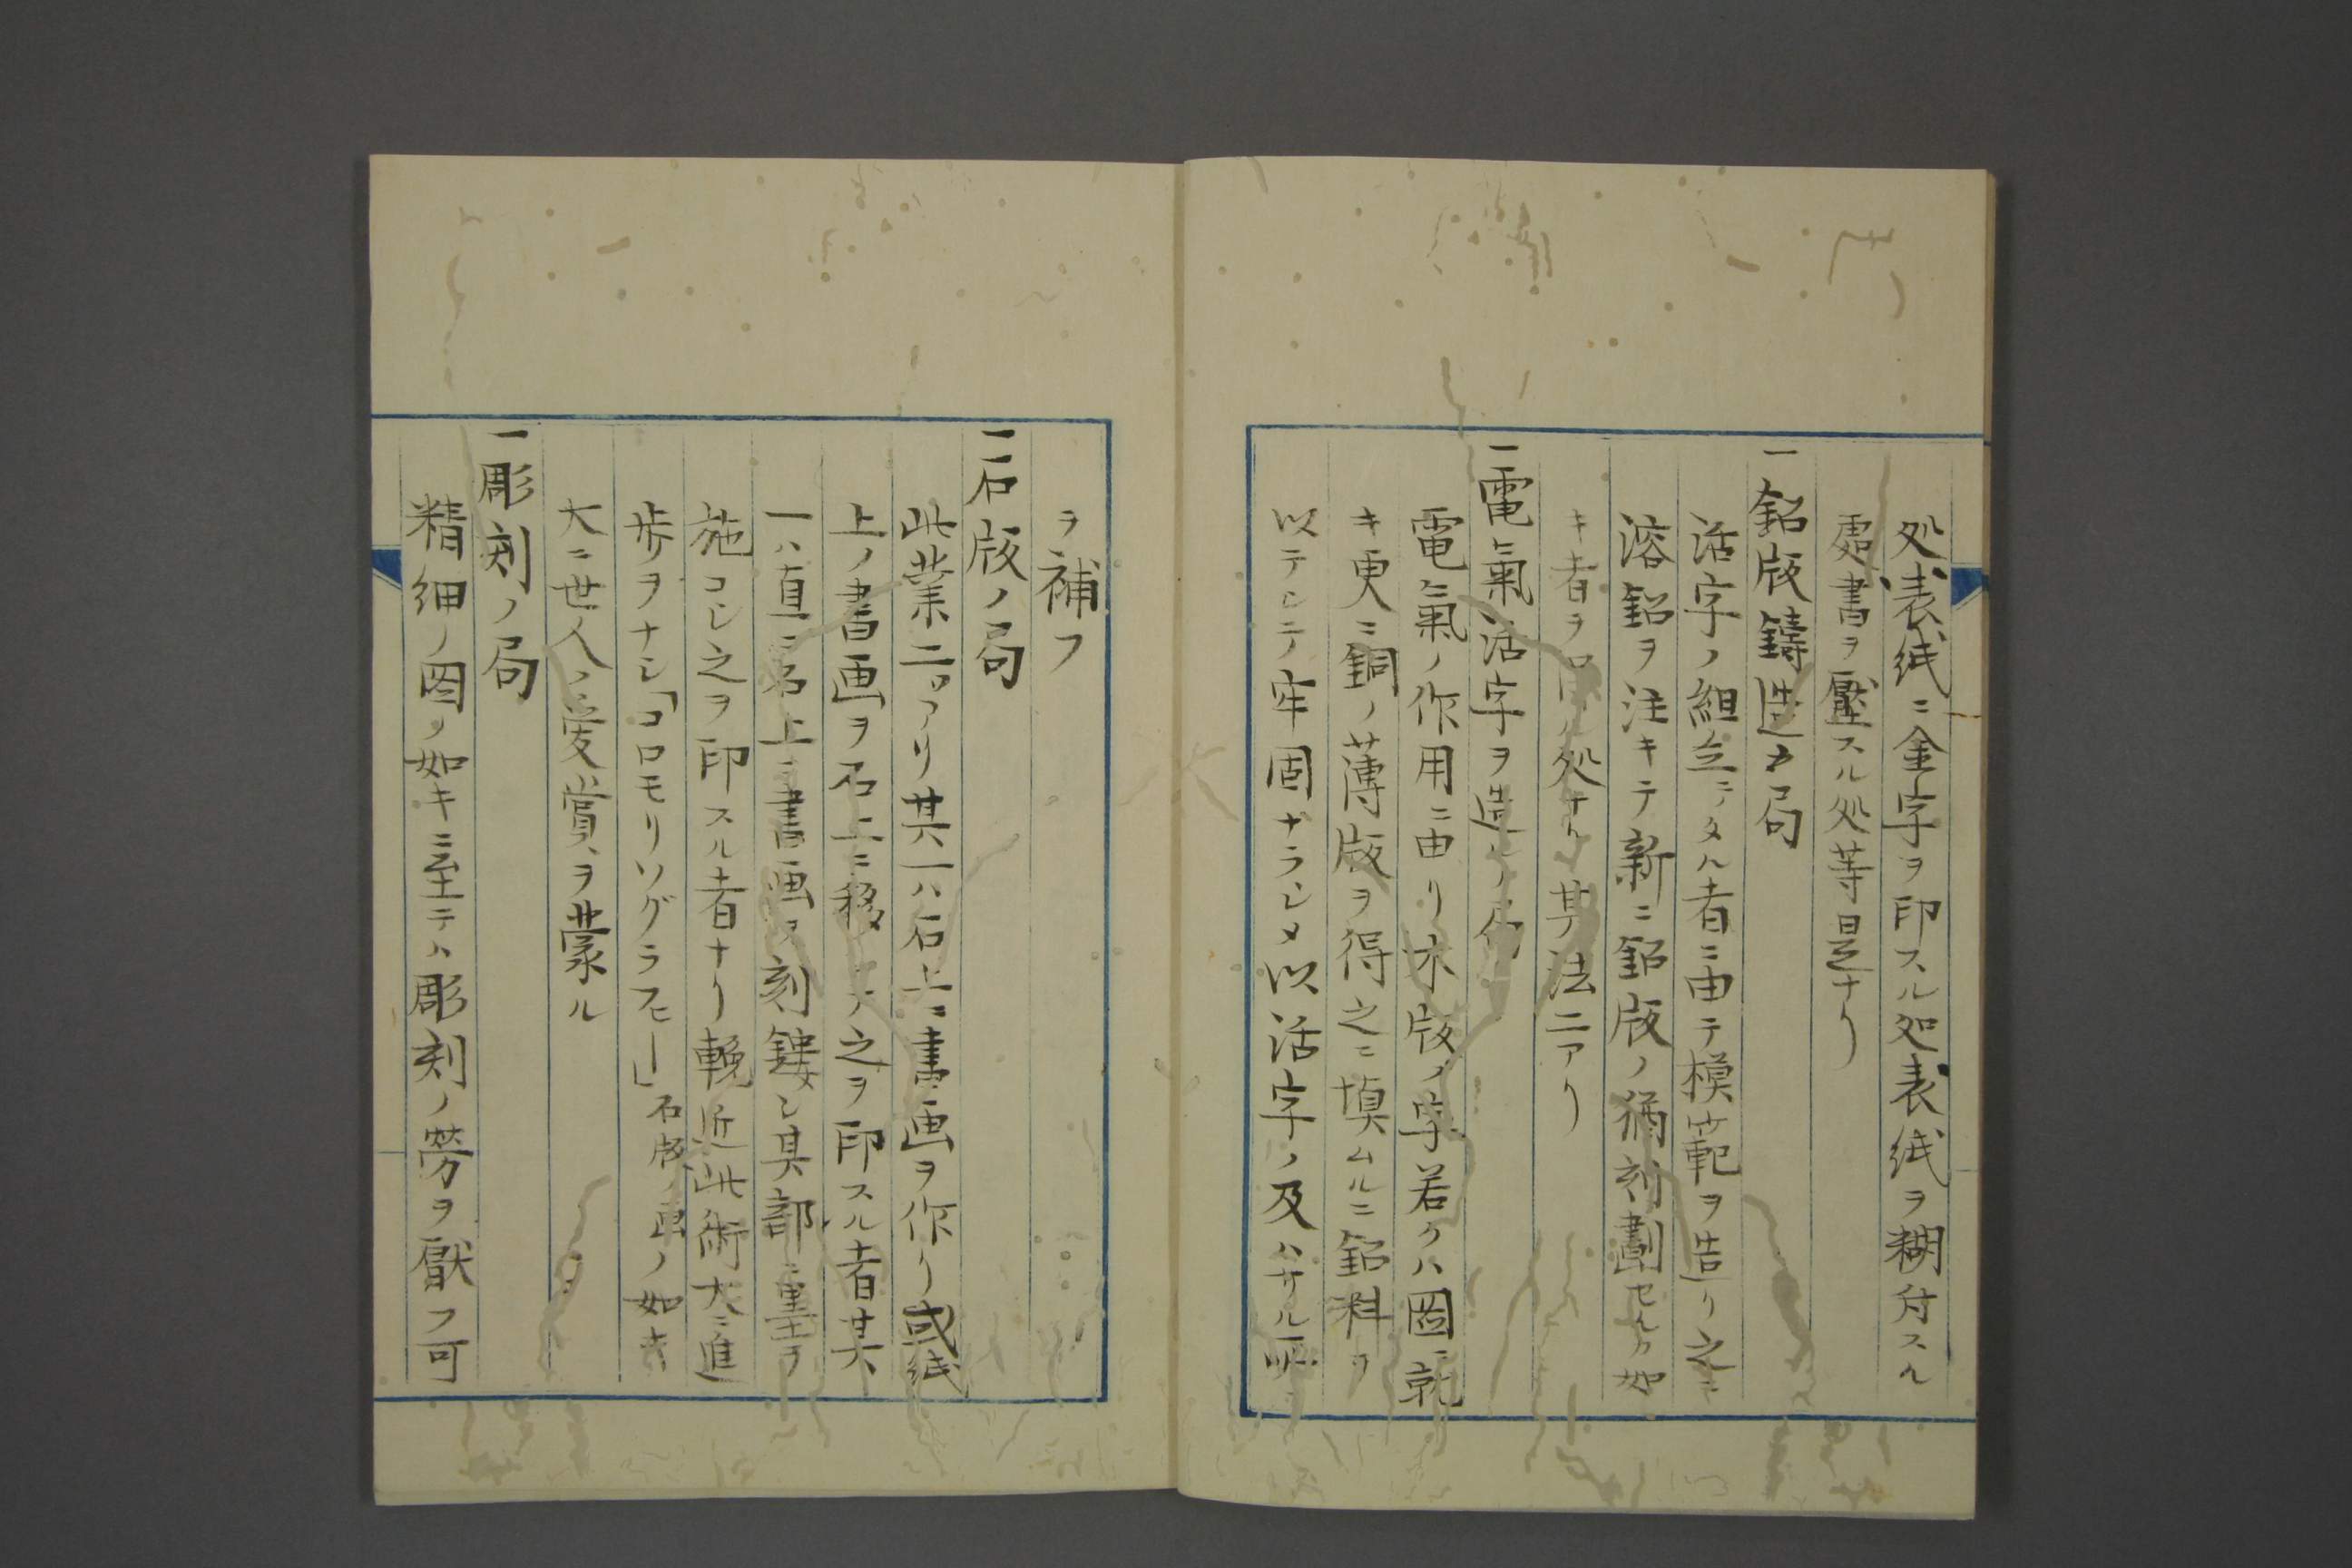 処表紙ニ金字ヲ印スル処表紙ヲ糊付スル
處書ヲ壓スル処等是ナリ
一鉛版鑄造ノ局
活字ノ組立テタル者ニ由テ模範ヲ造リ之ニ
溶鉛ヲ注キテ新ニ鉛版ノ猶刻劃セルカ如
キ者ヲ 処ナリ其法二アリ
一電氣活字ヲ造ルノ局
電氣ノ作用ニ由リ木版ノ字若クハ圖ニ就
キ更ニ銅ノ薄版ヲ得之ニ填ムルニ鉛料ヲ
以テシテ牢固ナラシメ以活字ノ及ハサル所
ヲ補フ
一石版ノ局
此業二アリ其一ハ石上ニ書画ヲ作リ或紙
上ノ書画ヲ石上ニ移シテ之ヲ印スル者其
一ハ直ニ石上ニ書画ヲ刻鏤シ其部ニ墨ヲ
施コシ之ヲ印スル者ナリ輓近此術大ニ進
歩ヲナシ「コロモリソグラフヒー」石版ノ画ノ如キ
大ニ世人ノ愛賞ヲ蒙ル
一彫刻ノ局
精細ノ図ノ如キニ至テハ彫刻ノ勞ヲ厭フ可